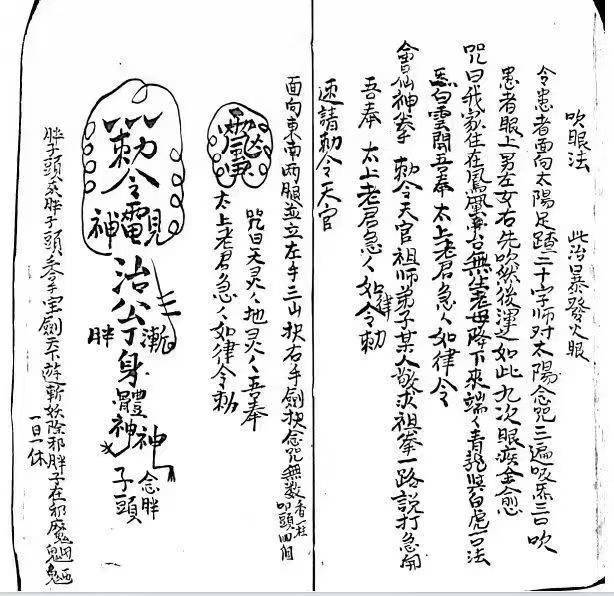 吹眼法 此治暴發火眼
令患者面向太陽足蹅二十字師对太陽念咒三遍吸炁三口吹
患者眼上男左女右先吹然後運之如此九次眼疾全愈
咒曰我家住在鳳凰 台無生老母降下來端々青龍與白虎一口法
炁白雲開吾奉太上老君急々如律令
會仙神拳 勅令天官祖師弟子某人敬求祖拳一路説打急開
吾奉 太上老君急々如律令勅
速請勅令天官
面向東南兩腿並立左手三山抉右手劍抉念咒無数香一柱叩頭四個
咒曰天灵々地灵々吾奉
太上老君急々如律令勅
勅令
神 治 身體
胖 漸
神 神
念胖子頭
胖子頭來胖子頭 手 宝劍天下遊斬妖除邪胖子在邪魔
一日一休